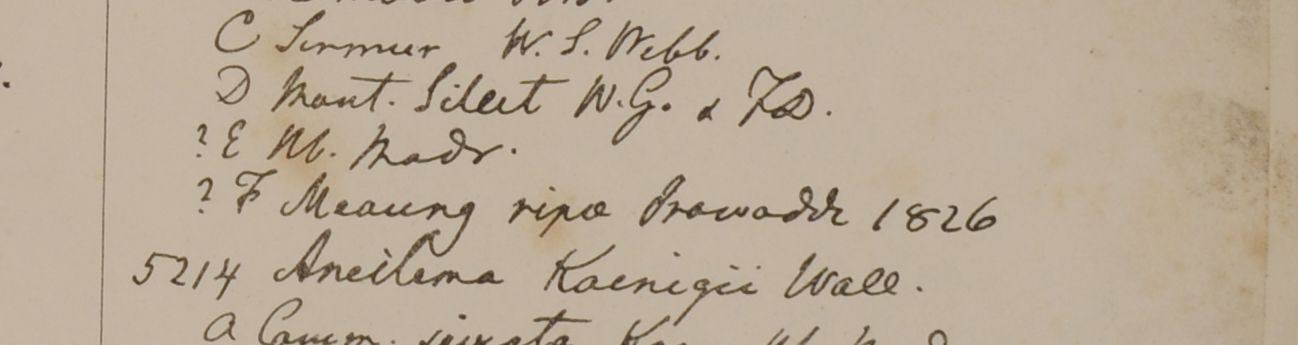 C Sirmur W. S. Webb.
D Mont. Sillet W.G. & FD.
? E Hb. Madr.
? F Meaung ripæ Irawaddi 1826
5214 Aneilema Koenigii Wall.
a Comm.